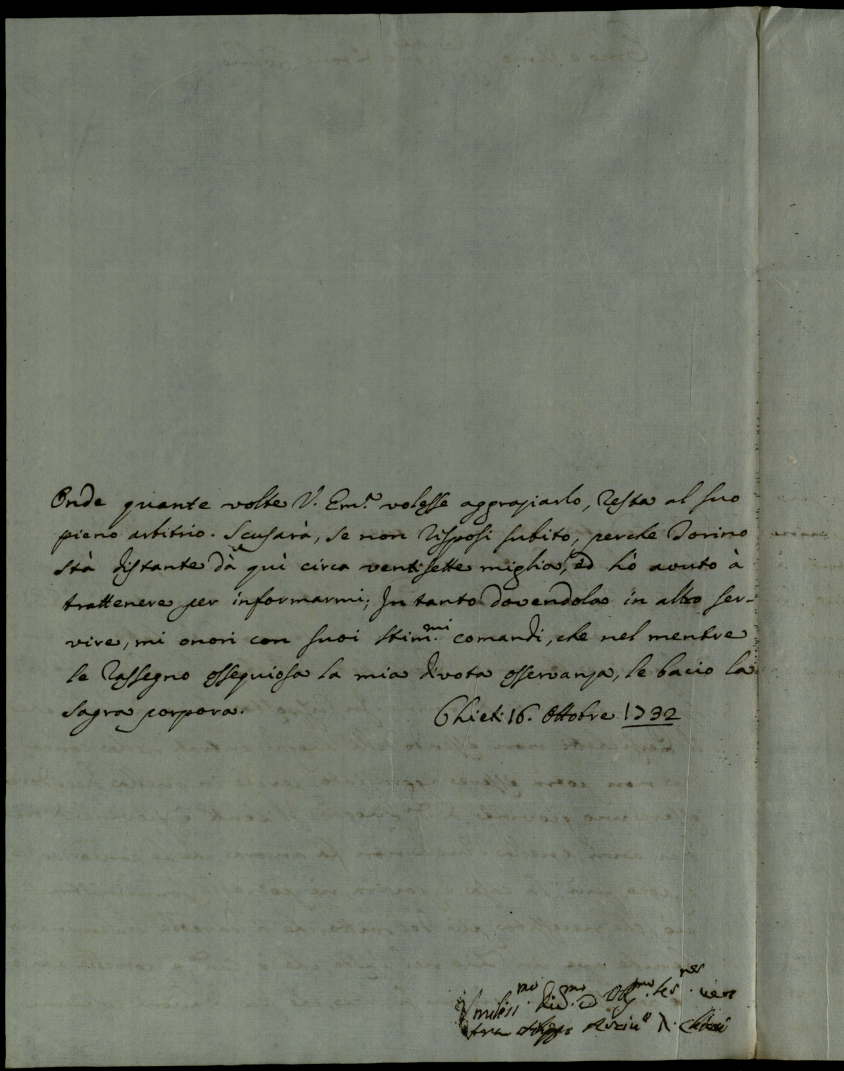 Onde quante volte V. Em.ª volesse aggraziarlo, resta al suo
pieno arbitrio. Scusarà, se non risposi subito, perche Torino
stà distante dà quì circa ventisette miglia, ed hò avuto à
trattenere per informarmi; In tanto dovendola in altro ser-
vire, mi onori con suoi stim.mi comandi, che nel mentre
le rassegno ossequiosa la mia divota osservanza, le bacio la
sagra porpora.
Chieti 16. Ottobre 1732
Umiliss.mo Div.mo ed Obl.mo
fra